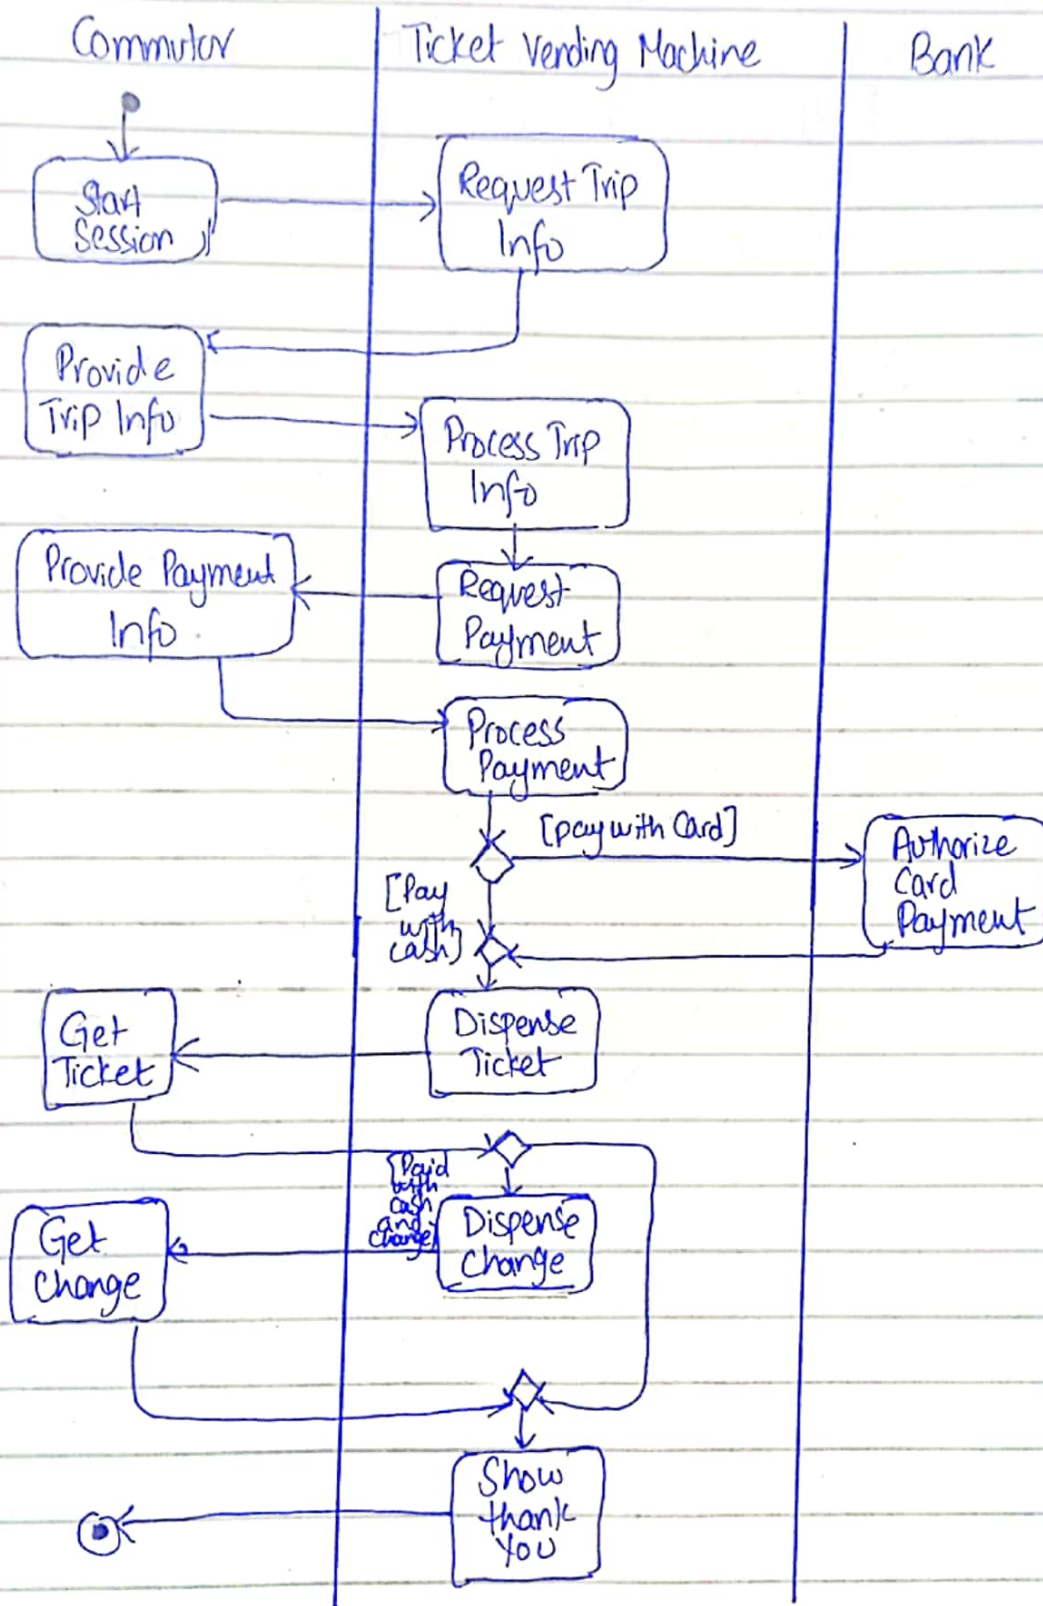 Commutor
Ticket Vending Machine
Bank
Start
Session
Request Trip
Info
Provide
Trip Info
Process Trip
Info
Provide Payment
Info
Request
Payment
Process
Payment
[pay with Card]
Authorize
Card
Payment
[Pay
with
cash]
Get
Ticket
Dispense
Ticket
[Paid
with
cash
and
change]
Dispense
Change
Get
Change
Show
thank
You